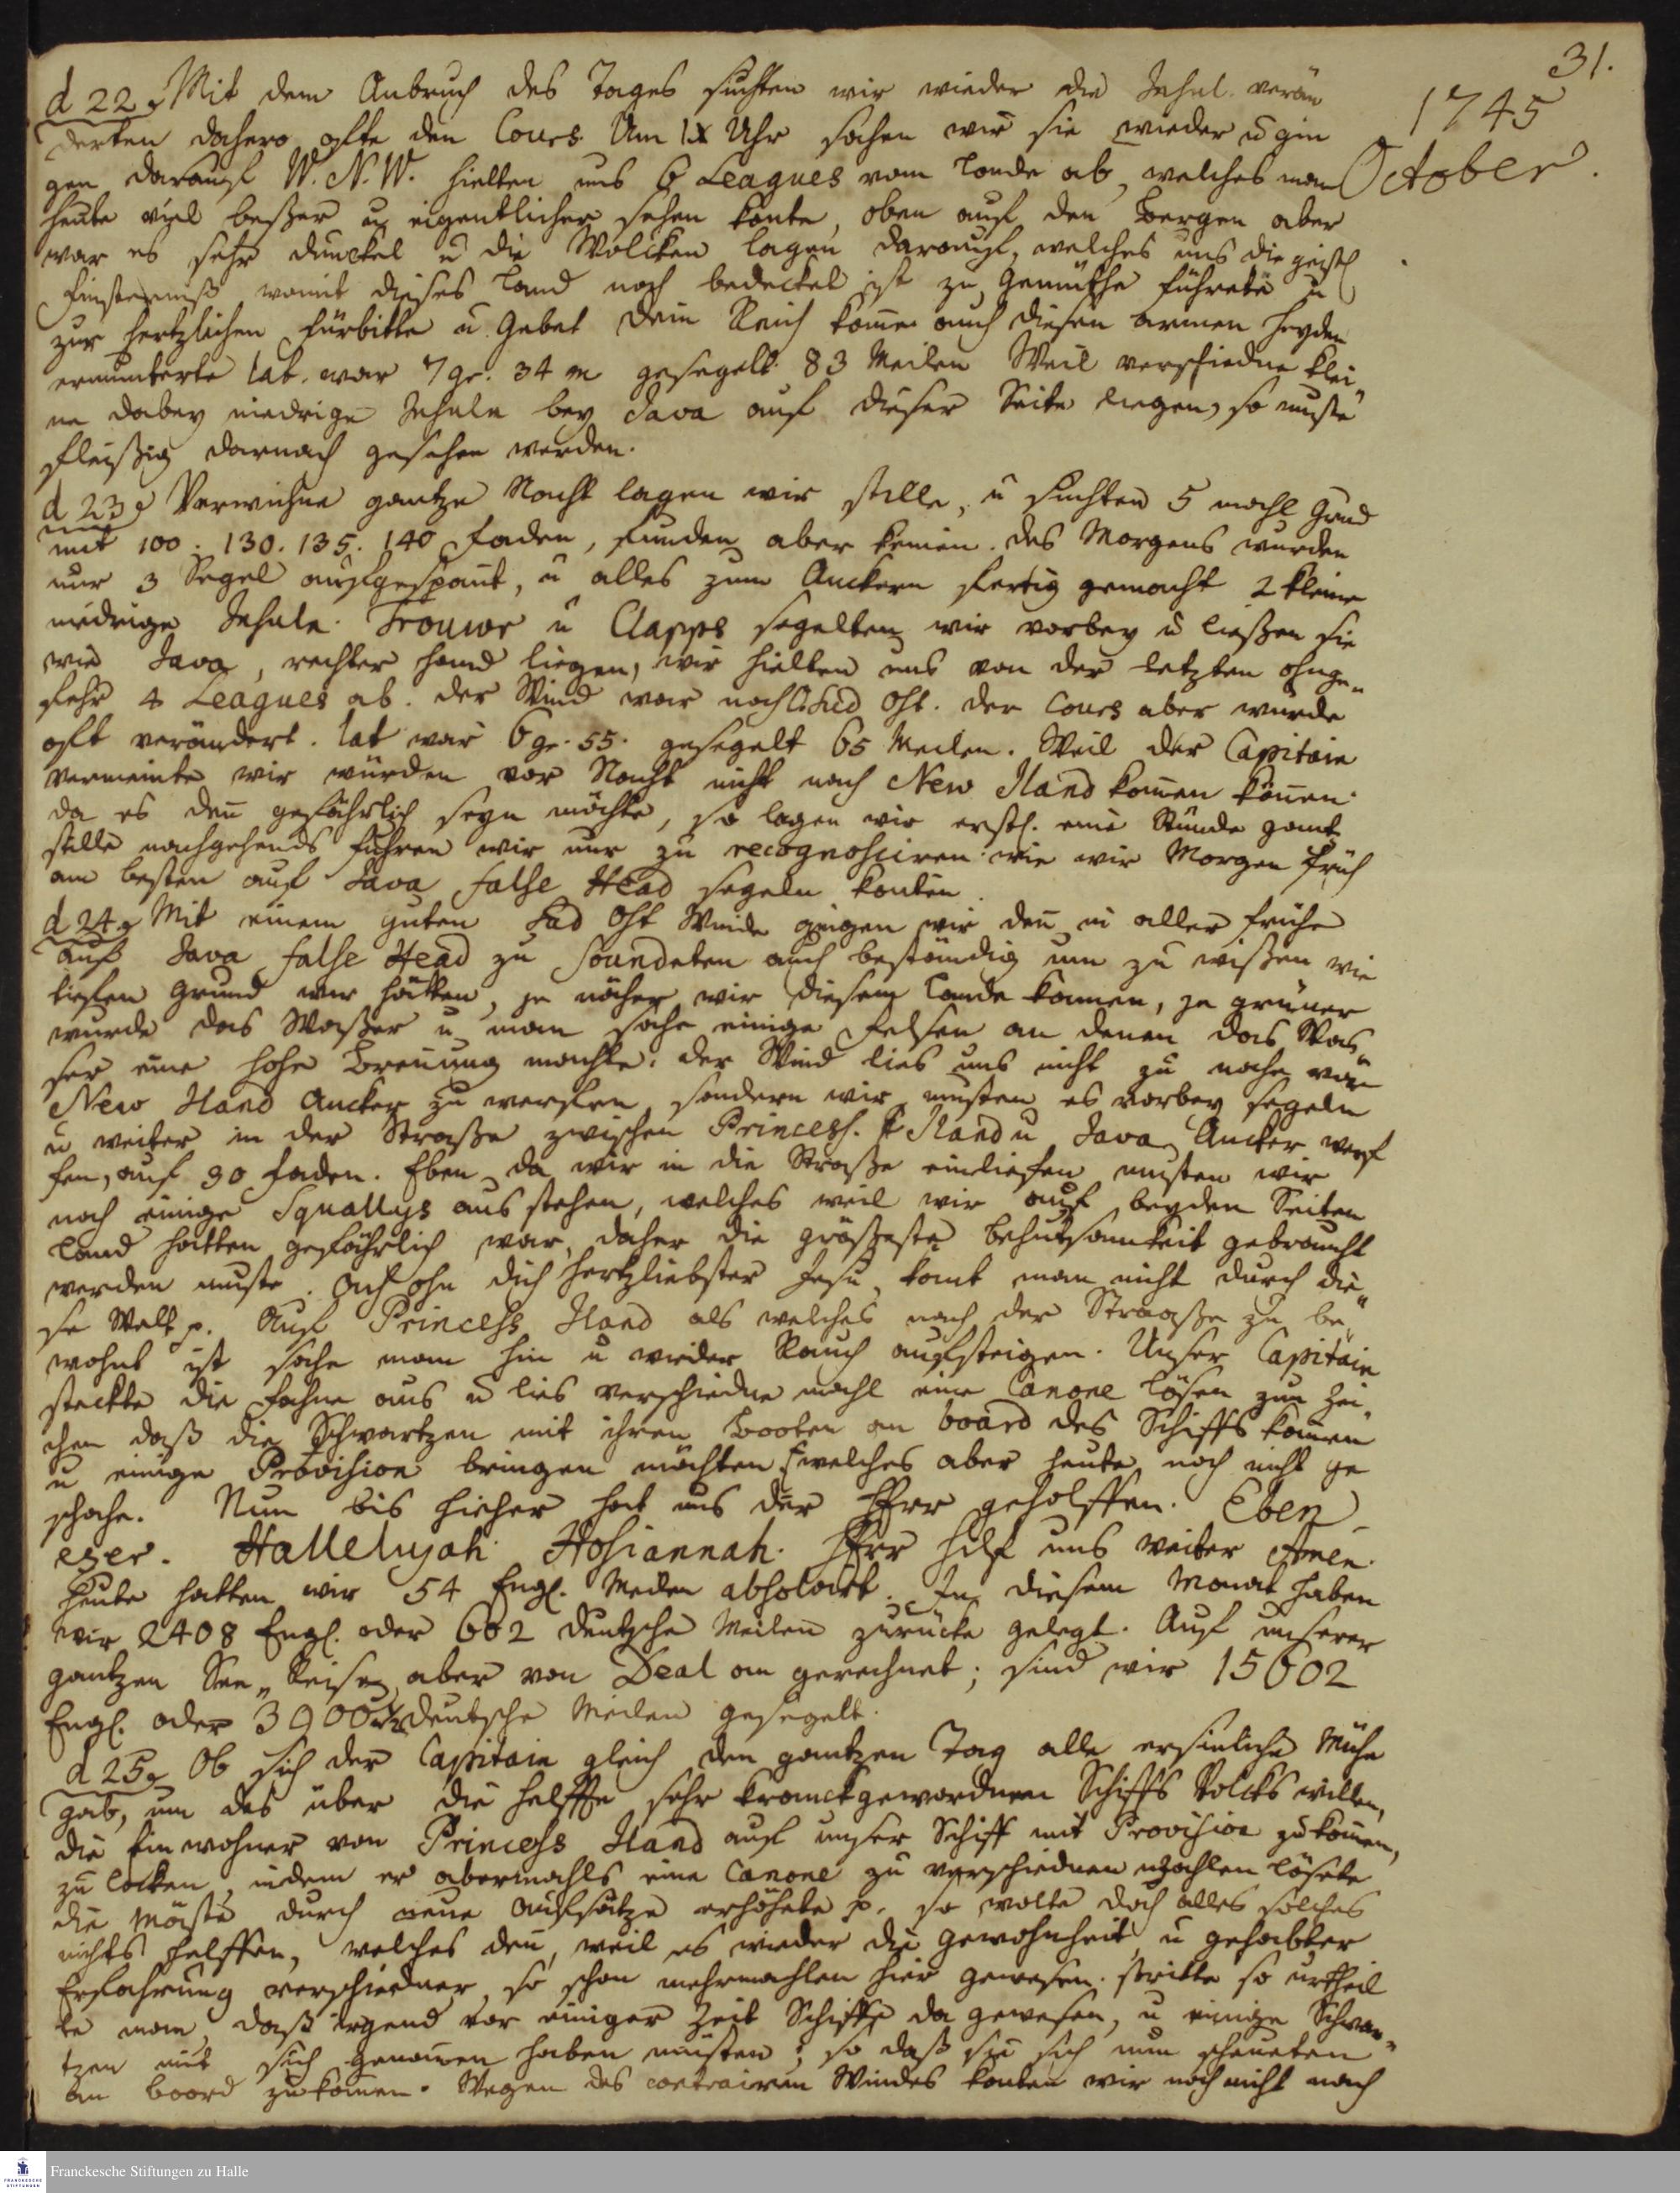 31.
1745
October.
d 22. Mit dem Anbruch des Tages suchten wir wieder die Insul. verän
derten dahero offte den Cours. Um IX Uhr sahen wir sie wieder u gin
gen darauf W. N. W. hielten uns 6 Leagues vom Lande ab, welches man
heute viel beßer u eigentlicher sehen konte, oben auf den Bergen aber
war es sehr dunckel u die Wolcken lagen darauf, welches uns die geistl
Finsterniß womit dieses Land noch bedecket ist zu Gemüthe führete u
zur hertzlichen Fürbitte u. Gebet Dein Reich kome auch diesen armen Heyden
ermunterte Lat. war 7 gr. 34 m gesegelt 83 Meilen Weil verschiedne klei„
ne dabey niedrige Insuln bey Java auf dieser Seite liegen, so muste
fleißig darnach gesehen werden.
d 23. Verwichne gantze Nacht lagen wir stille, u suchten 5 mahl Grud
mit 100. 130. 135. 140 Faden, funden aber keinen. des Morgens wurden
nur 3 Segel aufgespant, u alles zum Anckern fertig gemacht 2 kleine
niedrige Insuln. Trouwr u Clapps segelten wir vorbey u ließen sie
wie Java, rechter Hand liegen, wir hielten uns von der letzten ohnge„
fehr 4 Leagues ab. der Wind war noch Sud Ost. der Cours aber wurde
oft verändert. lat war 6 gr. 55. gesegelt 65 Meilen. Weil der Capitain
vermeinte wir würden vor Nacht nicht nach New Iland komen könen.
da es den gefährlich seyn möchte, so lagen wir erstl. eine Stunde gantz
stille nachgehends fuhren wir nur zu recognosciren wie wir Morgen früh
am besten auf Java false Head segeln konten.
d 24. Mit einem guten Sud Ost Winde gingen wir den in aller frühe
auf Java false Head zu soundeten auch beständig um zu wißen wie
tiefen Grund wir hätten, je näher wir diesem Lande kamen, je grüner
wurde das Waßer u man sahe einige Felsen an denen das Was„
ser eine hohe Brenung machte. der Wind lies uns nicht zu nahe von
New Iland Ancker zu werffen sondern wir musten es vorbey segeln
u weiter in der Straße zwischen Princess. Iland u Java Ancker werf
fen, auf 30 Faden. Eben da wir in die Straße einliefen musten wir
noch einige Squallys ausstehen, welches weil wir auf beyden Seiten
Land hatten gefährlich war, daher die größeste Behutsamkeit gebraucht
werden muste. Ach ohn dich hertzliebster Jesu, komt man nicht durch die„
se Welt p. Auf Princess Iland als welches nach der Straaße zu be„
wohnt ist sahe man hin u wieder Rauch aufsteigen. Unser Capitain
steckte die Fahne aus u lies verschiedne mahl eine Canone lösen zum Zei„
chen daß die Schwartzen mit ihren Booten an board des Schiffs komen
u einige Provision bringen möchten welches aber heute noch nicht ge
schahe. Nun bis hieher hat uns der HErr geholffen. Eben
ezer. Hallelujah Hosiannah. HErr hilf uns weiter Amen.
heute hatten wir 54 Engl. Meilen absolvirt. In diesem Monat haben
wir 2408 Engl. oder 602 deutsche Meilen zurücke gelegt. Auf unserer
gantzen See„Reise aber von Deal an gerechnet; sind wir 15602
Engl. oder 3900½ deutsche Meilen gesegelt.
d 25. Ob sich der Capitain gleich den gantzen Tag alle ersinliche Mühe
gab, um des über die helffte sehr kranckgewordnen Schiffs Volcks willen,
die Einwohner von Princess Iland auf unser Schiff mit Provision zu komen,
zu locken, indem er abermahls eine Canone zu verschiednen mahlen lösete
die Mäste durch neue Aufsätze erhöhete p. so wolte doch alles solches
nichts helffen, welches den, weil es wieder die Gewohnheit u gehabter
Erfahrung verschiedner so schon mehrmahlen hier gewesen. stritte so urtheil
te man, daß irgend vor einiger Zeit Schiffe da gewesen, u einige Schwar„
tzen mit sich genomen haben müsten; so daß sie sich nun scheueten
an boord zu komen. Wegen des contrairen Windes konten wir noch nicht nach
Franckesche Stiftungen zu Halle